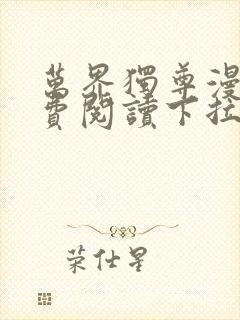 萬界獨尊漫
費閱讀下拉
荣仕星